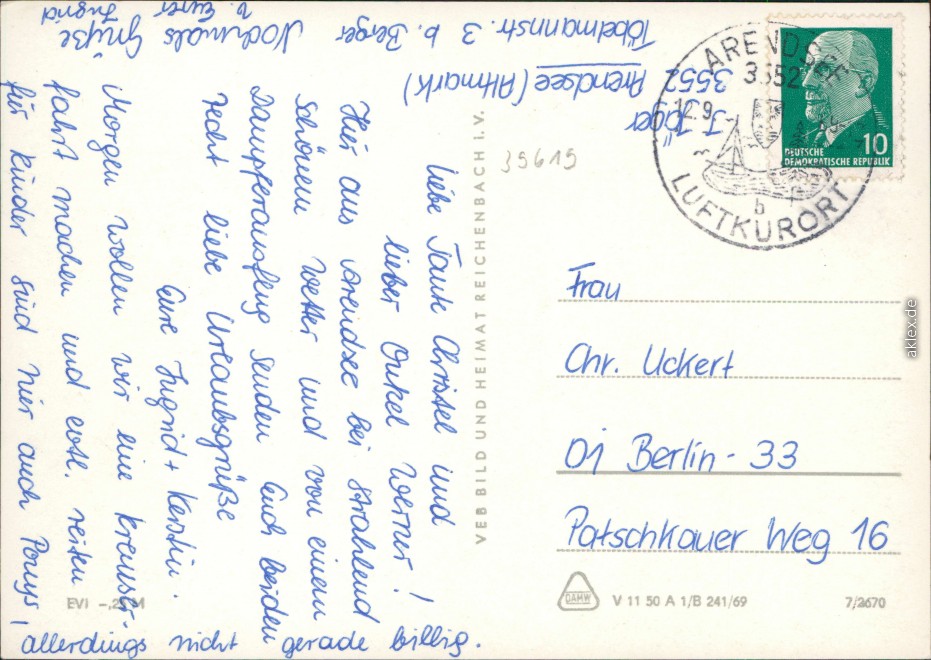 Liebe Tante Christel und
lieber Onkel Werner!
Hier aus Arendsee bei strahlend
schönem Wetter und von einem
Dampferausflug senden Euch beiden
recht liebe Urlaubsgrüße
Eure Ingrid + Kerstin.
Morgen wollen wir eine Kremser-
fahrt machen und evtl. reiten
für Kinder sind hier auch Ponys,
allerdings nicht gerade billig.
Nochmals Grüße
v. Eurer
Ingrid
J. Jäger
3552
Arendsee (Altmark)
Töbelmannstr. 3 b. Berger
VEB BILD UND HEIMAT REICHENBACH I. V.
39619
ARENDSEE
3552
12.9.
b
LUFTKURORT
10
DEUTSCHE
DEMOKRATISCHE REPUBLIK
Frau
Chr. Uckert
01 Berlin - 33
Patschkauer Weg 16
DAMW
V 11 50 A 1/B 241/69
7/2670
EVP -,25 M
aklex.de